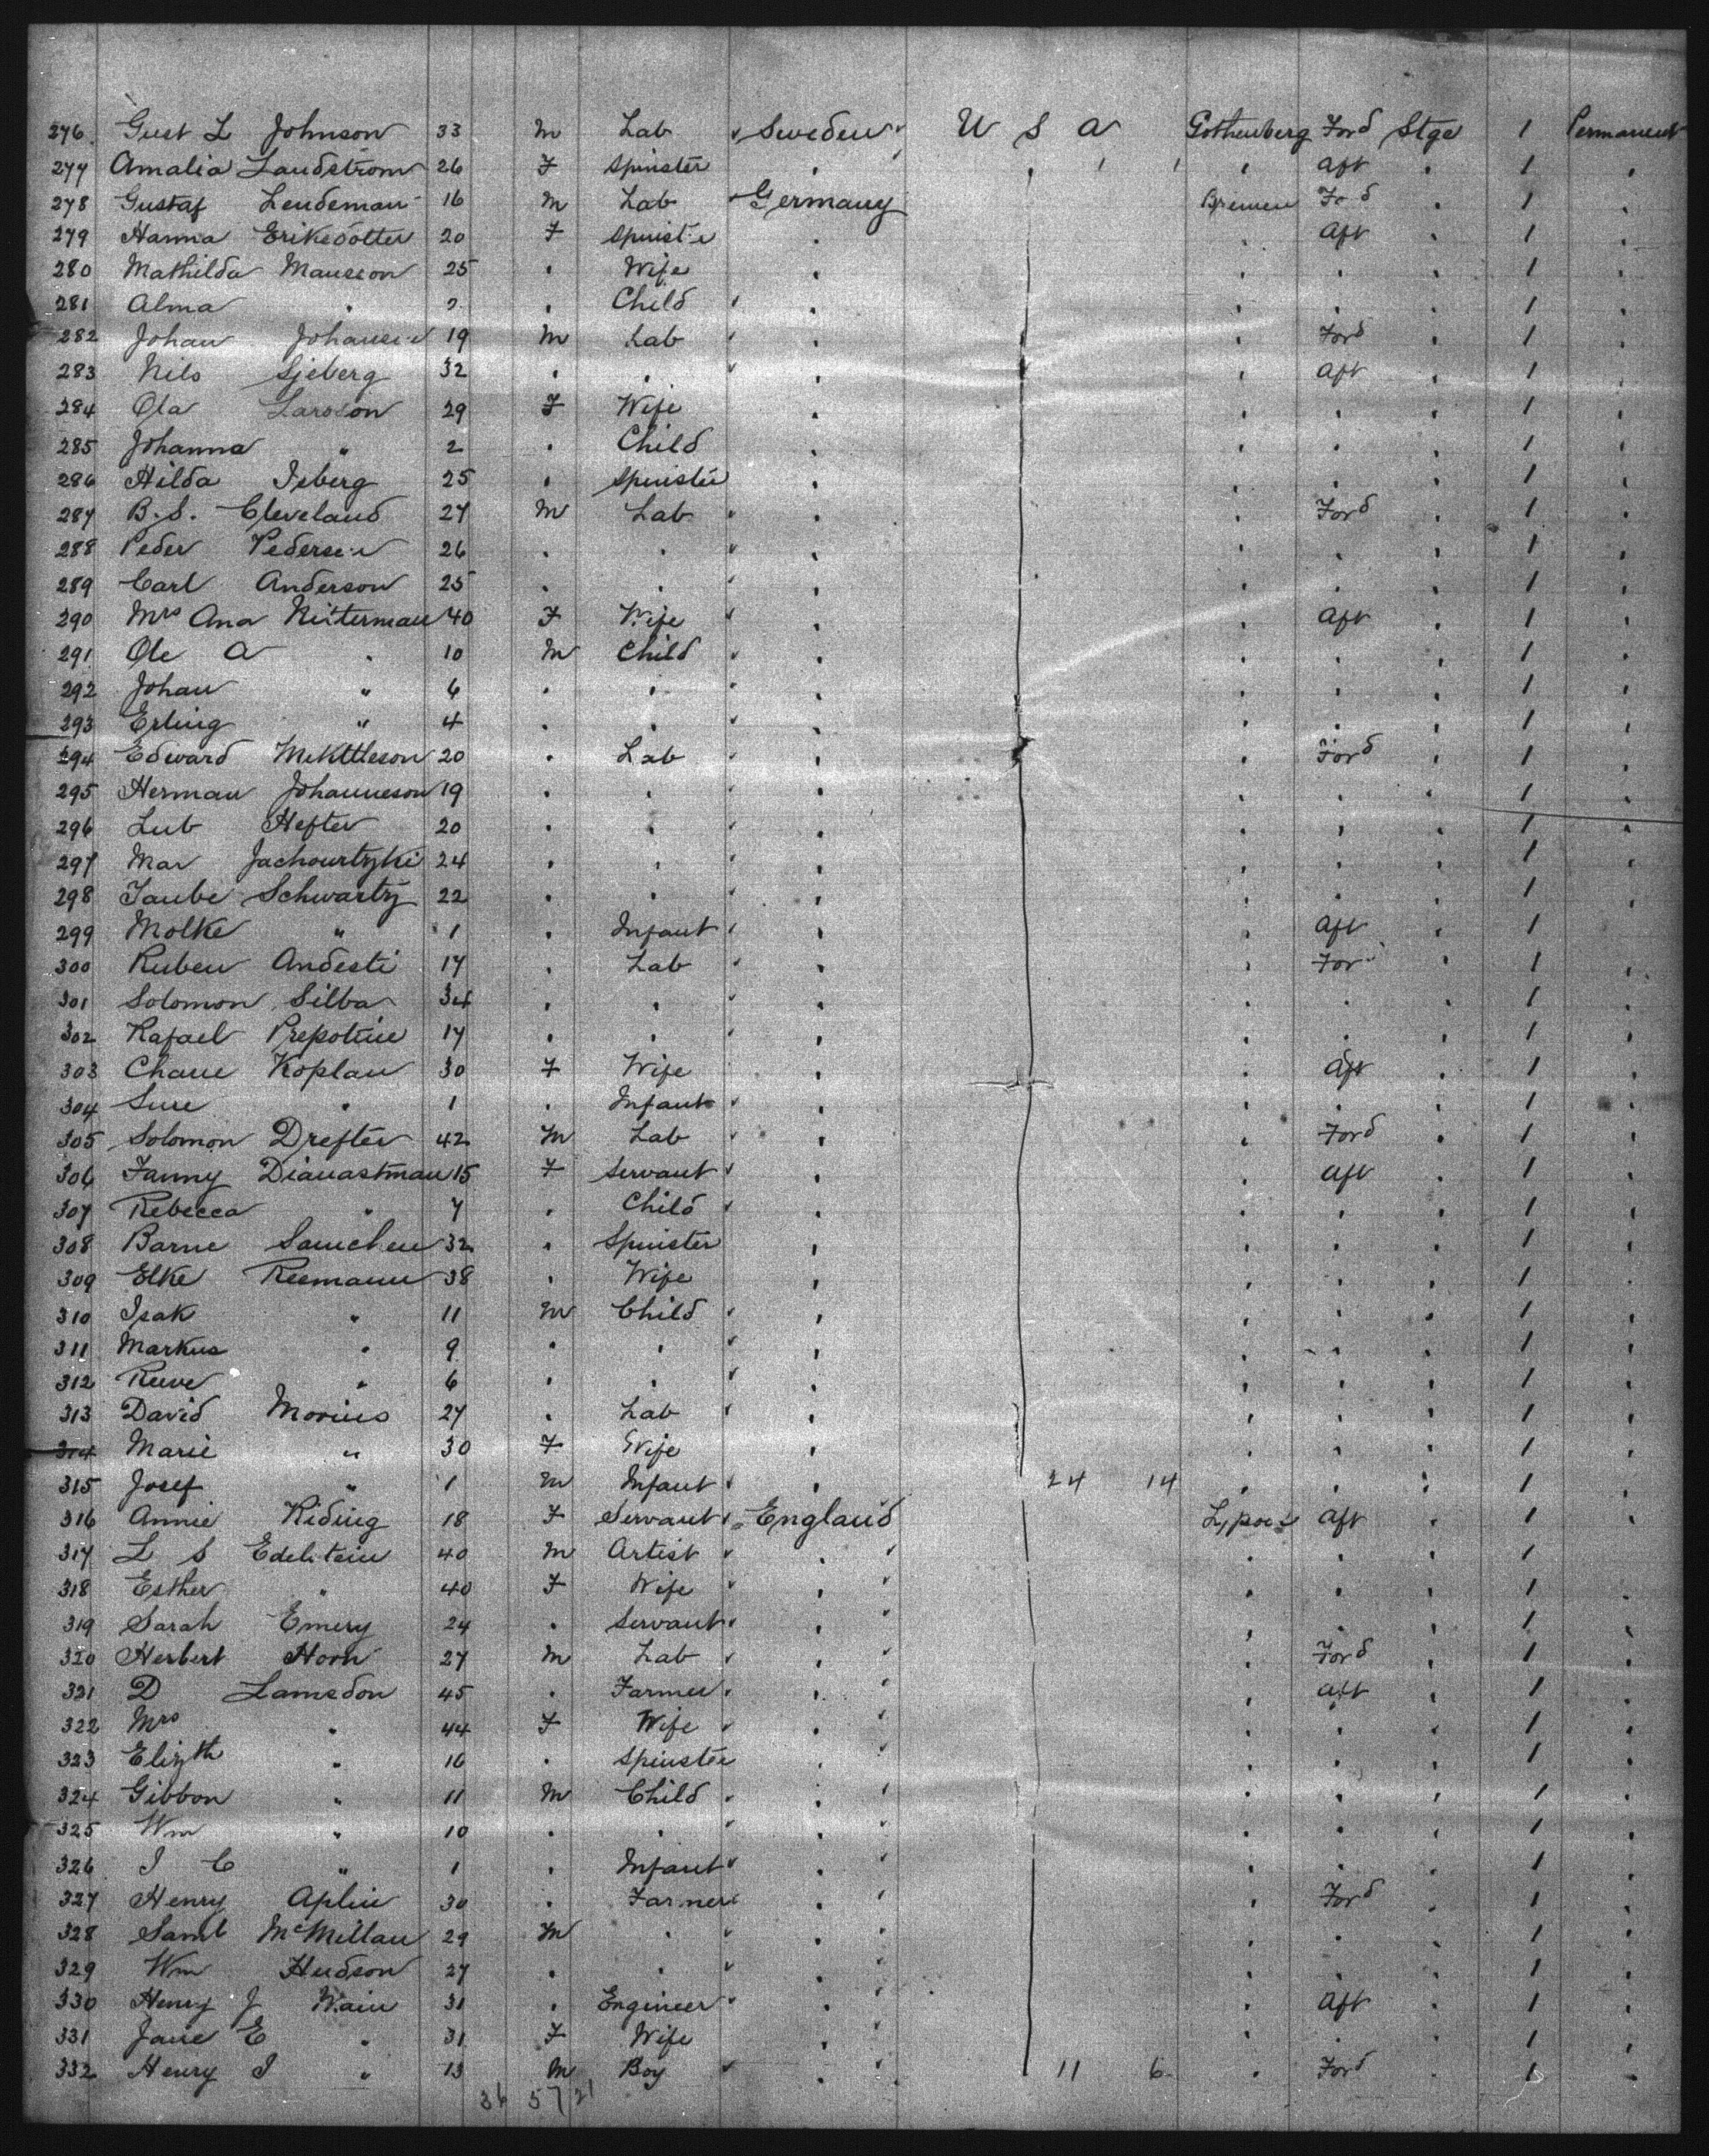 276 Gust L Johnson 33 m Lab Sweden U S A Gothenberg Ford Stge 1 Permanent
277 Amalia Landstrom 26 F Spinster Aft 1
278 Gustaf Lendeman 16 m Lab Germany Bremen Ford 1
279 Hanna Eriksdotter 20 F Spinster Aft 1
280 Mathilda Mansson 25 Wife 1
281 Alma " Child 1
282 Johan 19 m Lab Ford 1
283 Nils Sjeberg 32 Aft 1
284 Ola Larsson 29 F Wife 1
285 Johanna " 2 Child 1
286 Hilda Isberg 25 Spinster 1
287 B. S. Cleveland 27 m Lab Ford 1
288 Peder Pedersen 26 1
289 Carl Anderson 25 1
290 Mrs Ana Nitterman 40 F Wife Aft 1
291 Ole A " 10 m Child 1
292 Johan " 6 1
293 Erling " 4 1
294 Edward 20 Lab Ford 1
295 Herman Johanneson 19 1
296 Lub Hefter 20 1
297 Mar 24 1
298 Taube Schwartz 22 1
299 Molke " 1 Infant Aft 1
300 Ruben Andesti 17 Lab For 1
301 Solomon Silba 34 1
302 Rafael Prepotine 17 1
303 Chane Koplan 30 F Wife Aft 1
304 Sure " 1 Infant 1
305 Solomon Drefter 42 m Lab Ford 1
306 Fanny Dianastman 15 F Servant Aft 1
307 Rebecca " 7 Child 1
308 Barne 32 Spinster 1
309 Elke Reemann 38 Wife 1
310 Isak " 11 m Child 1
311 Markus " 9 1
312 " 6 1
313 David Morius 27 Lab 1
314 Marie " 30 F Wife 1
315 Josef " 1 m Infant 24 14 1
316 Annie Riding 18 F Servant England L,pool Aft 1
317 L S Edelstein 40 m Artist 1
318 Esther " 40 F Wife 1
319 Sarah Emery 24 Servant 1
320 Herbert Horn 27 m Lab Ford 1
321 D Lamsdon 45 Farmer Aft 1
322 Mrs " 44 F Wife 1
323 Elizth " 16 Spinster 1
324 Gibbon " 11 m Child 1
325 Wm " 10 1
326 I C " 1 Infant 1
327 Henry Aplin 30 Farmer Ford 1
328 Saml McMillan 29 m 1
329 Wm Hudson 27 1
330 Henry J Wain 31 Engineer Aft 1
331 Jane E " 31 F Wife 1
332 Henry I " 13 m Boy 11 6 Ford 1
36 57/21